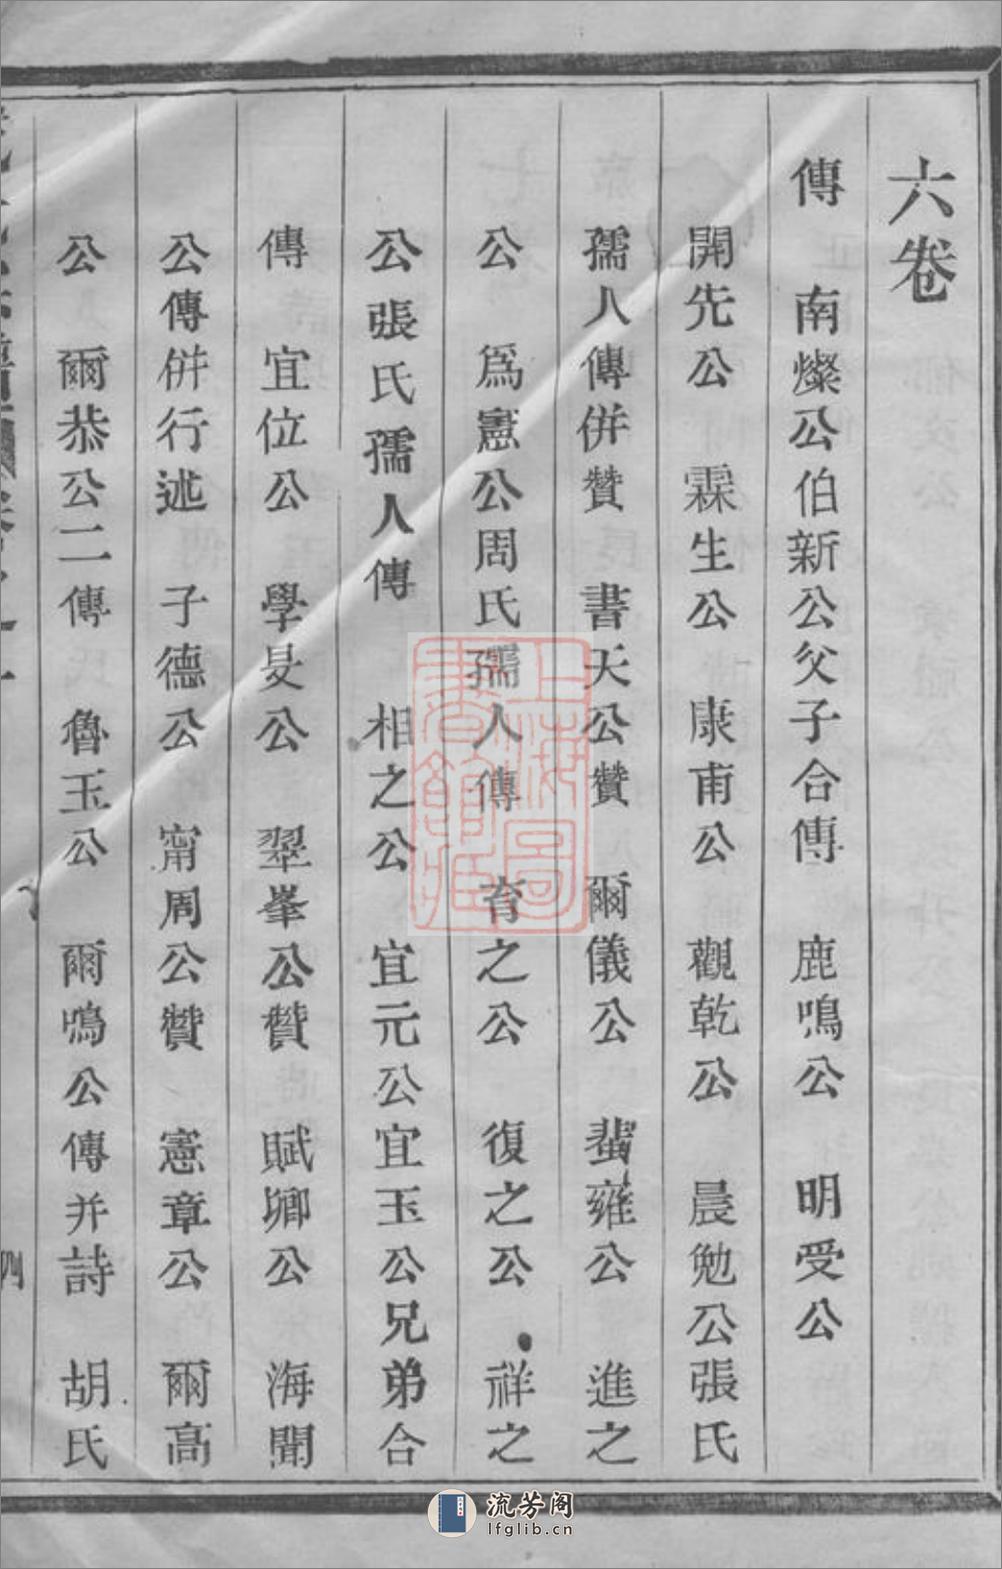 六卷
傳　南燦公伯新公父子合傳　鹿鳴公　明受公
開先公　霖生公　康甫公　觀乾公　晨勉公張氏
孺人傳併贊　書天公贊　爾儀公　蜚雍公　進之
公　爲憲公周氏孺人傳　育之公　復之公　祥之
公張氏孺人傳　相之公　宜元公宜玉公兄弟合
傳　宜位公　學旻公　翠峯公贊　賦卿公　海聞
公傳併行述　子德公　甯周公贊　憲章公　爾高
公　爾恭公二傳　魯玉公　爾鳴公傳并詩　胡氏
四
上海圖書館藏
流芳阁
lfglib.cn